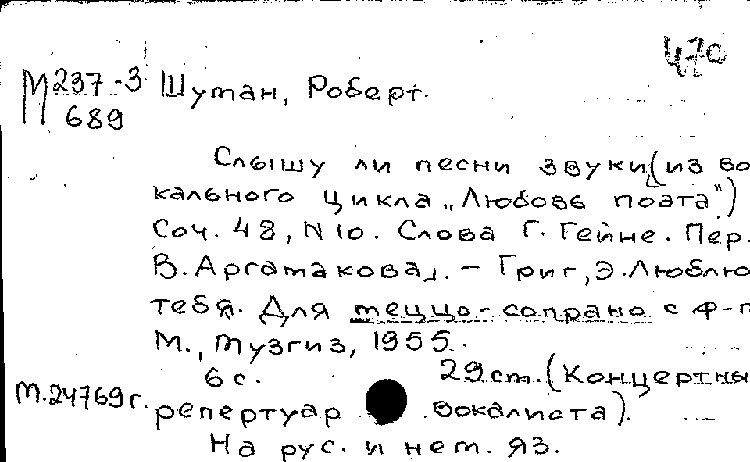 47с
М 237-3 Шуман, Роберт.
689
Слышу ли песни звуки (из во
кального цикла „Любовь поэта")
Соч. 48, N 10. Слова Г. Гейне. Пер.
В. Аргамакова. – Григ, Э. Люблю
тебя. Для меццо-сопрано с ф-п
М., Музгиз, 1955.
6 с. 29 cm. (Концертны
М.24769г. репертуар вокалиста).
На рус. и нем. яз.